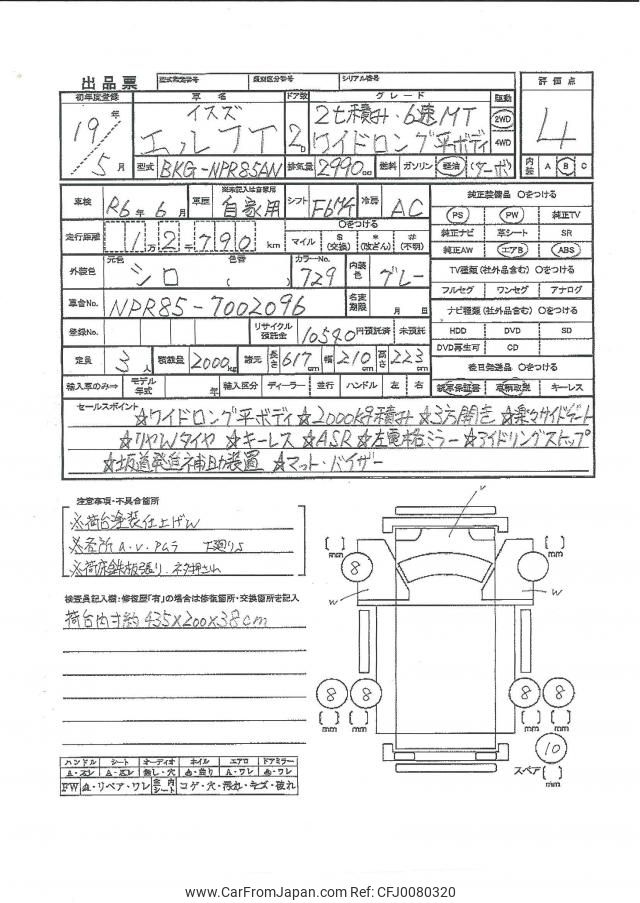 出品票 型式指定番号 類別区分番号 シリアル番号 評価点
初年度登録 車名 ドア数 グレード 駆動
19年 イスズ 2t積み・6速MT 2WD
5月 エルフT 2D ワイドロング平ボディ 4WD 4
型式 BKG-NPR85AN 排気量 2990cc 燃料 ガソリン 軽油 (ターボ) 内装 A B C
車検 R6年6月 車歴 ※未記入は自家用 自家用 シフト F6MT 冷房 AC 純正装備品 ○をつける
PS PW 純正TV
走行距離 11万2千790km ○をつける マイル $(交換) *(改ざん) #(不明) 純正ナビ 革シート SR
純正AW エアB ABS
外装色 元色 シロ 色替 ( ) カラーNo. 729 内装色 グレー TV種類(社外品含む) ○をつける
フルセグ ワンセグ アナログ
車台No. NPR85-7002096 名変期限 月 日 ナビ種類(社外品含む) ○をつける
登録No. リサイクル預託金 10540円預託済 未預託 HDD DVD SD
DVD再生可 CD
定員 3人 積載量 2000kg 諸元 長さ617cm 幅210cm 高さ223cm 後日発送品 ○をつける
輸入車のみ⇒ モデル年式 年 輸入区分 ディーラー 並行 ハンドル 左 右 新車保証書 車輌取説 キーレス
セールスポイント ☆ワイドロング平ボディ ☆2000kg積み ☆三方開き ☆楽々サイドゲート
☆リヤWタイヤ ☆キーレス ☆ASR ☆左電格ミラー ☆アイドリングストップ
☆坂道発進補助装置 ☆マット・バイザー
注意事項・不具合箇所
※荷台塗装仕上げW
※各所A.U.PムラT廻りS
※荷床鉄板張り.ネタ押され
検査員記入欄:修復歴「有」の場合は修復箇所・交換箇所を記入
荷台内寸約435×200×38cm
U
[ ] mm 8 [ ] mm
W W
8 8 8 8
[ ] mm [ ] mm [ ] mm [ ] mm
10
スペア [ ] mm
ハンドル シート オーディオ ホイル エアロ ドアミラー
A・スレ A・スレ 無し・穴 A・曲り A・ワレ A・ワレ
FW A・リペア・ワレ 全内シート コゲ・穴・汚れ・キズ・破れ
www.CarFromJapan.com Ref: CFJ0080320